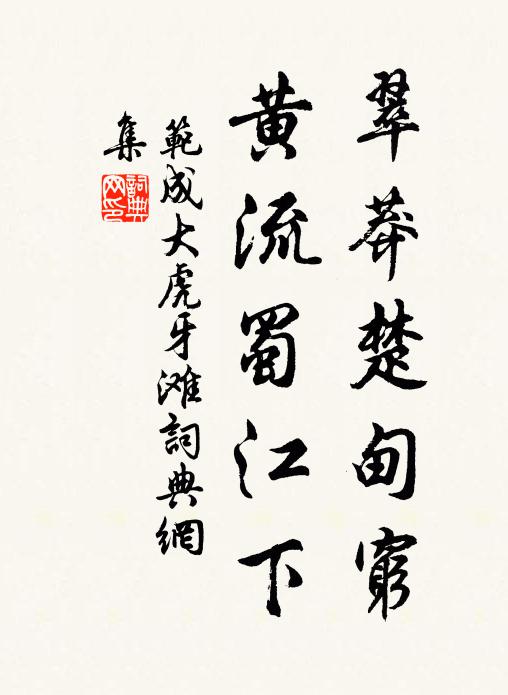 翠莽楚甸窮
黄流蜀江下
範成大虎牙滩詞典網
集
詞典网印